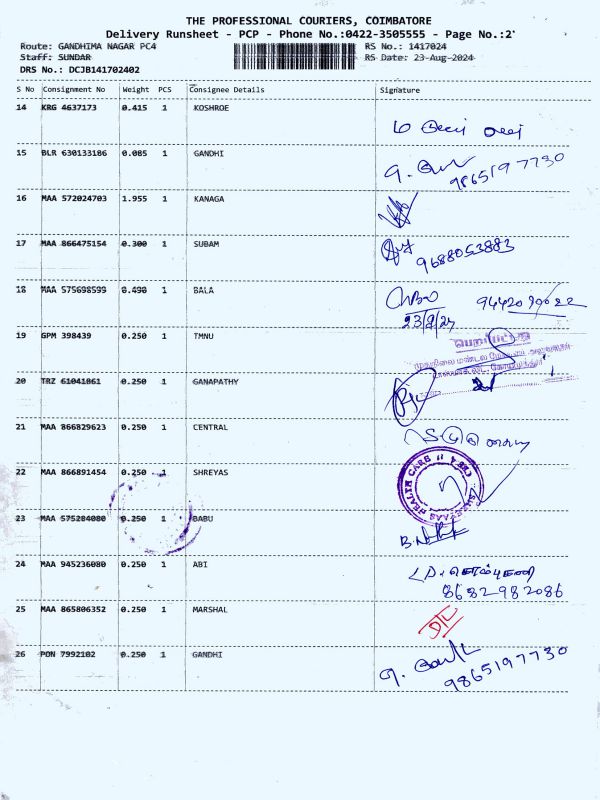 THE PROFESSIONAL COURIERS, COIMBATORE
Delivery Runsheet - PCP - Phone No.:0422-3505555 - Page No.:2
Route: GANDHIMA NAGAR PC4 RS No.: 1417024
Staff: SUNDAR RS Date: 23-Aug-2024
DRS No.: DCJB141702402
S No Consignment No Weight PCS Consignee Details Signature
14 KRG 4637173 0.415 1 KOSHROE
15 BLR 630133186 0.085 1 GANDHI
9865197730
16 MAA 572024703 1.955 1 KANAGA
17 MAA 866475154 0.300 1 SUBAM
9688053883
18 MAA 575698599 0.490 1 BALA
23/8/24
19 GPM 398439 0.250 1 TMNU
20 TRZ 61041061 0.250 1 GANAPATHY
21 MAA 866829623 0.250 1 CENTRAL
22 MAA 866891454 0.250 1 SHREYAS
HEALTH CARE
23 MAA 575284080 0.250 1 BABU
24 MAA 945236080 0.250 1 ABI
8682982086
25 MAA 865806352 0.250 1 MARSHAL
D/L
26 PON 7992102 0.250 1 GANDHI
9865197730